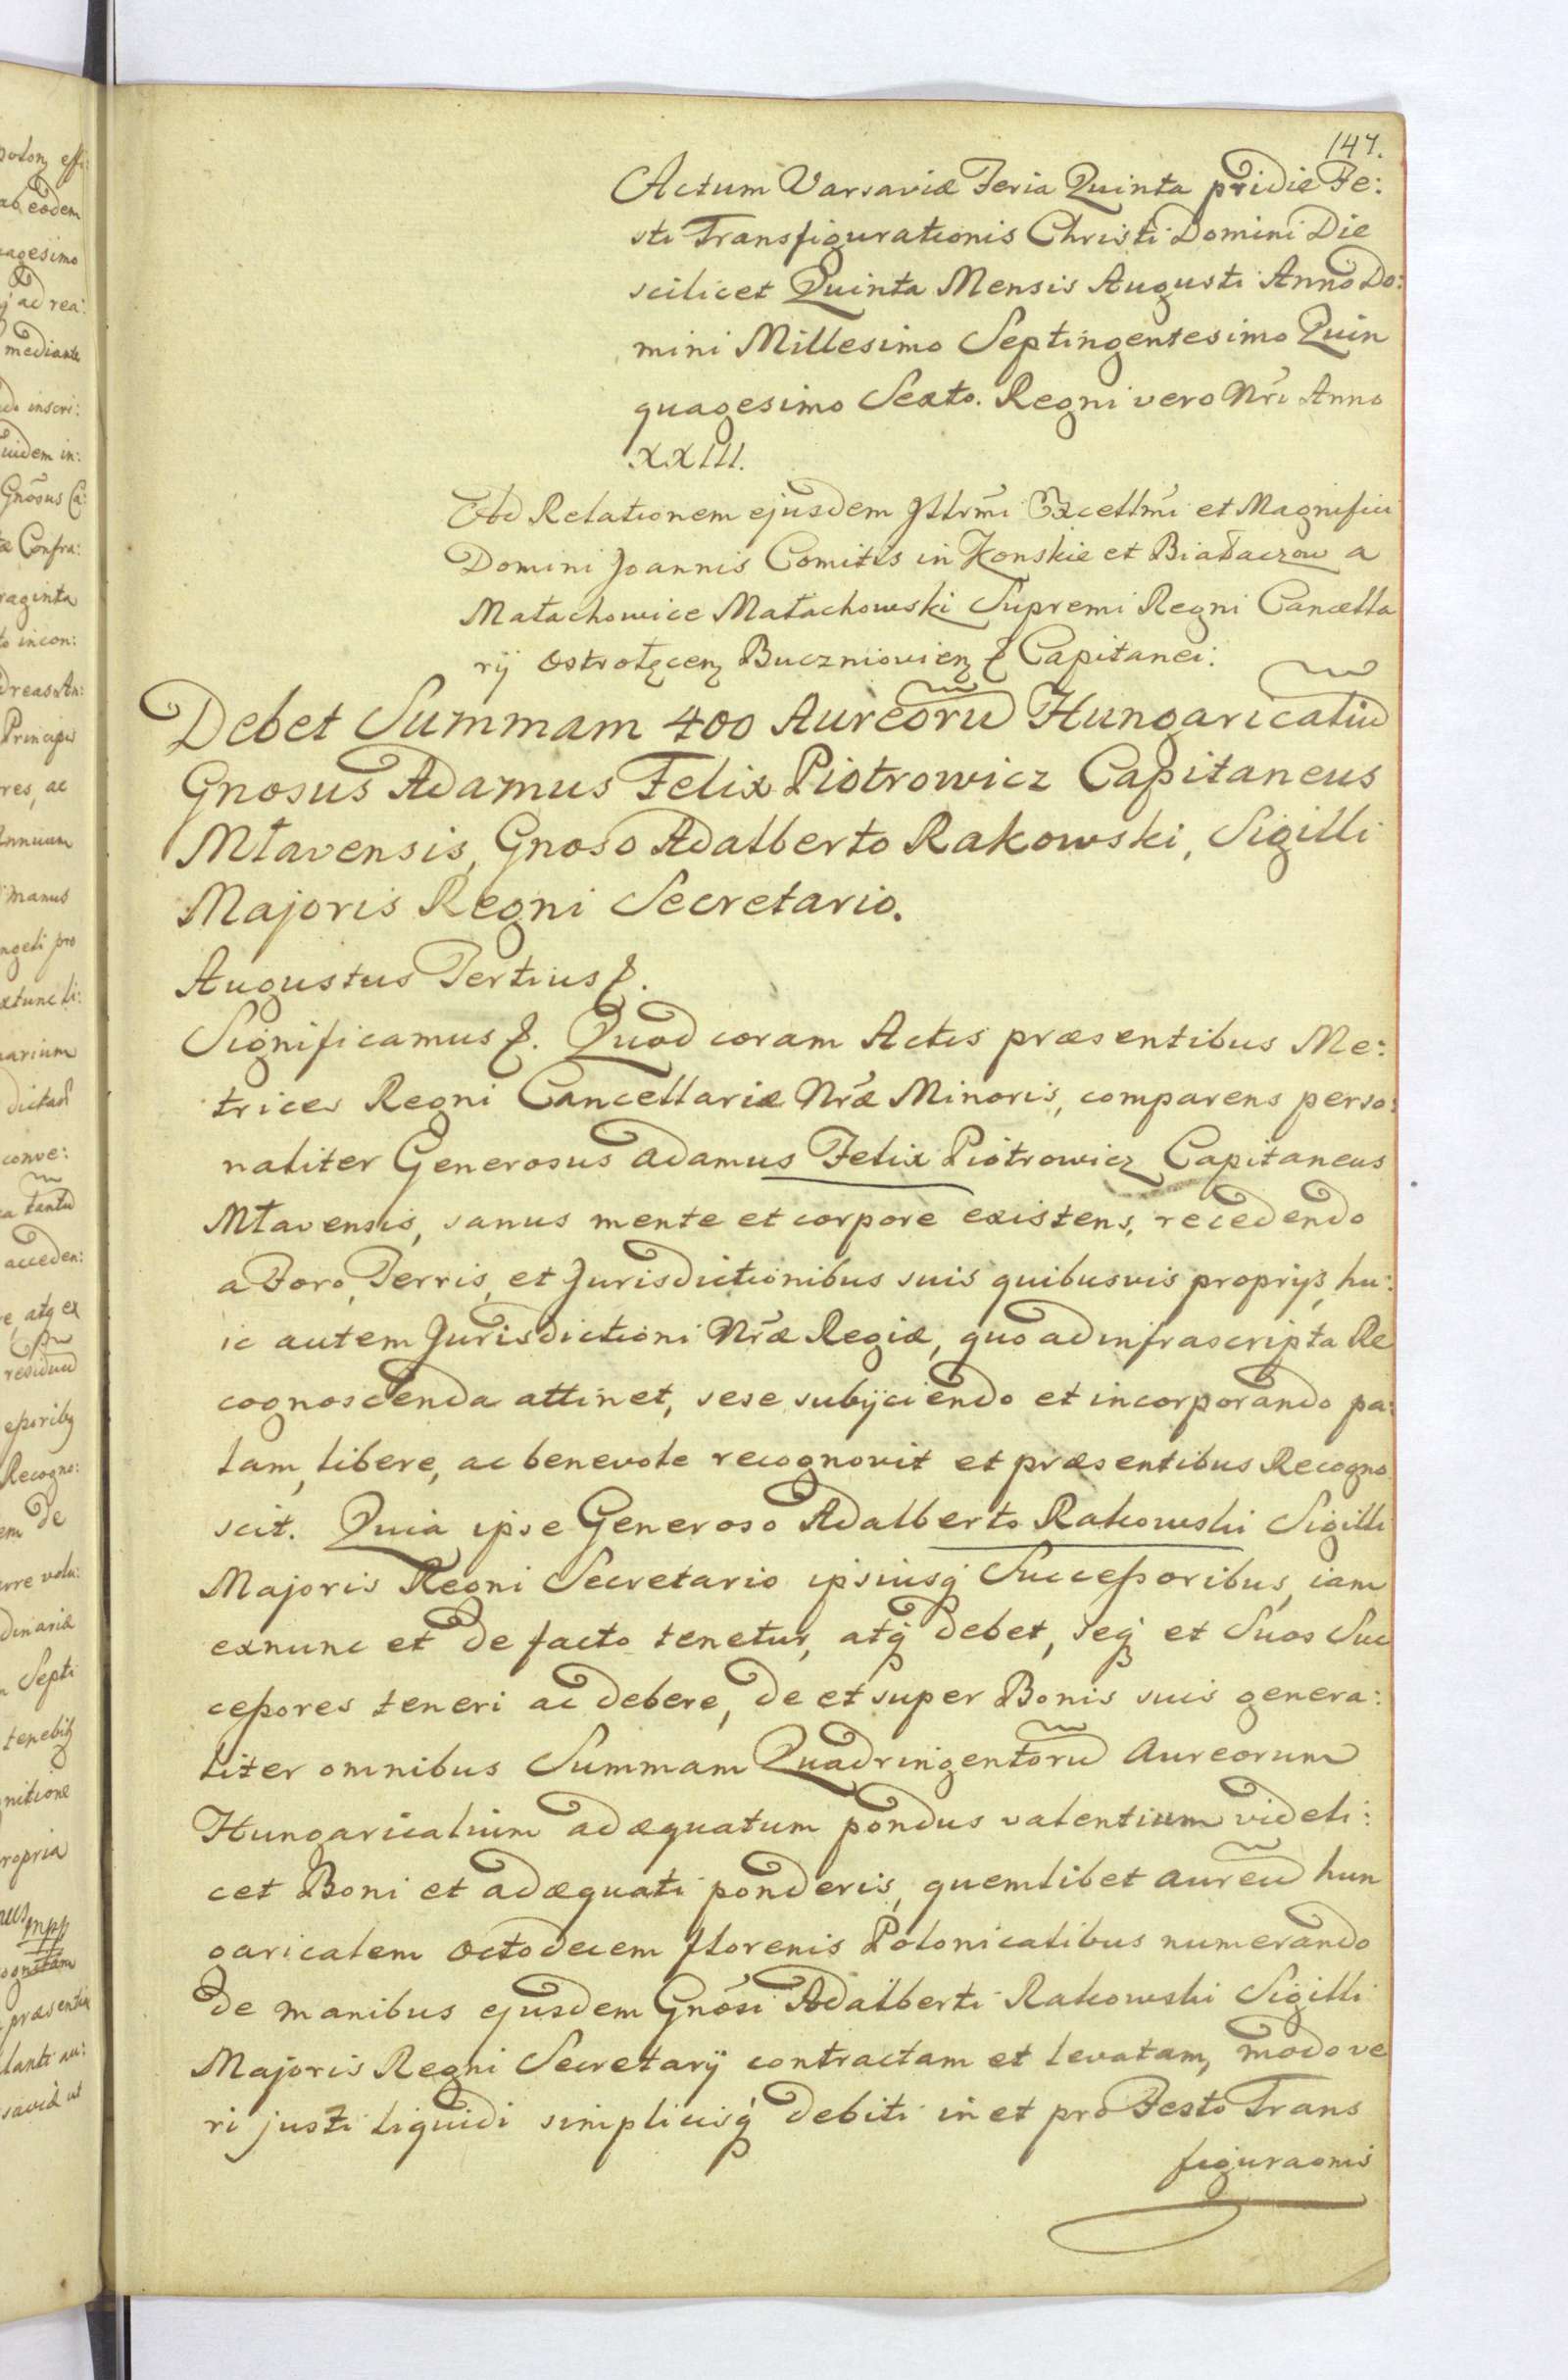 147.
Actum Varsaviæ Feria Quinta pridie Fe:
sti Transfigurationis Christi Domini Die
scilicet Quinta Mensis Augusti Anno Do:
mini Millesimo Septingentesimo Quin
quagesimo Sexto. Regni vero Nri Anno
XXIII.
Ad Relationem ejusdem Jllrmi Excellmi et Magnifici
Domini Joannis Comitis in Konskie et Białaczow a
Małachowice Małachowski Supremi Regni Cancella
rij Ostrołęcen Buczniovien & Capitanei:
Debet Summam 400 Aureorũ Hungaricaliũ
Gnosus Adamus Felix Piotrowicz Capitaneus
Mławensis, Gnoso Adalberto Rakowski, Sigilli
Majoris Regni Secretario.
Augustus Tertius &.
Significamus &. Quod coram Actis præsentibus Me:
trices Regni Cancellariæ Nræ Minoris, comparens perso:
naliter Generosus Adamus Felix Piotrowicz Capitaneus
Młavensis, sanus mente et corpore existens, recedendo
a Foro, Terris, et Jurisdictionibus suis quibusvis proprijs, hu:
ic autem Jurisdictioni Nræ Regiæ, quo ad infrascripta Re
cognoscenda attinet, sese subijciendo et incorporando pa:
lam, libere, ac benevole recognovit et præsentibus Recogno
scit. Quia ipse Generoso Adalberto Rakowski Sigilli
Majoris Regni Secretario ipsiusq Successoribus, iam
exnunc et de facto tenetur, atq debet, seq et Suos Suc
cessores teneri ac debere, de et super Bonis suis genera:
liter omnibus Summam Quadringentorũ Aureorum
Hungaricalium adæquatum pondus valentium videli:
cet Boni et adæquati ponderis, quemlibet aureũ hun
garicalem octodecem florenis Polonicalibus numerando
de manibus ejusdem Gnosi Adalberti Rakowski Sigilli
Majoris Regni Secretarij contractam et levatam, modo ve
ri justi liquidi simplicisq debiti in et pro Festo Trans
figuraonis